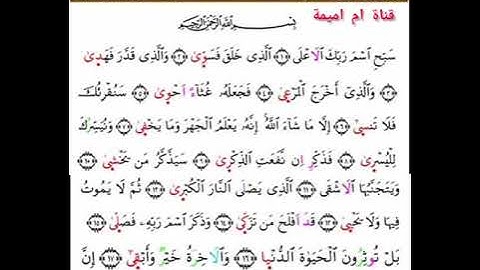 قناة ام اميمة
بِسْمِ اللَّهِ الرَّحْمَٰنِ الرَّحِيمِ
سَبِّحِ اسْمَ رَبِّكَ الَاعْلَى ۝١ الَّذِى خَلَقَ فَسَوّ۪ىٰ ۝٢ وَالَّذِى قَدَّرَ فَهَد۪ىٰ
۝٣ وَالَّذِىٓ أَخْرَجَ الْمَرْع۪ىٰ ۝٤ فَجَعَلَهُۥ غُثَآءً اَحْو۪ىٰ ۝٥ سَنُقْرِئُكَ
فَلَا تَنس۪ىٰٓ ۝٦ إِلَّا مَا شَآءَ اللَّهُ إِنَّهُۥ يَعْلَمُ الْجَهْرَ وَمَا يَخْف۪ىٰ ۝٧ وَنُيَسِّرُكَ
لِلْيُسْر۪ىٰ ۝٨ فَذَكِّرِ اِن نَّفَعَتِ الذِّكْر۪ىٰ ۝٩ سَيَذَّكَّرُ مَن يَخْش۪ىٰ ۝١٠
وَيَتَجَنَّبُهَا الَاشْقَى ۝١١ الَّذِى يَصْلَى النَّارَ الْكُبْر۪ىٰ ۝١٢ ثُمَّ لَا يَمُوتُ
فِيهَا وَلَا يَحْي۪ىٰ ۝١٣ قَدَ اَفْلَحَ مَن تَزَكّ۪ىٰ ۝١٤ وَذَكَرَ اسْمَ رَبِّهِۦ فَصَلّ۪ىٰ ۝١٥
بَلْ تُوثِرُونَ الْحَيَوٰةَ الدُّنْي۪ا ۝١٦ وَالَاخِرَةُ خَيْرٌ وَأَبْق۪ىٰٓ ۝١٧ إِنَّ